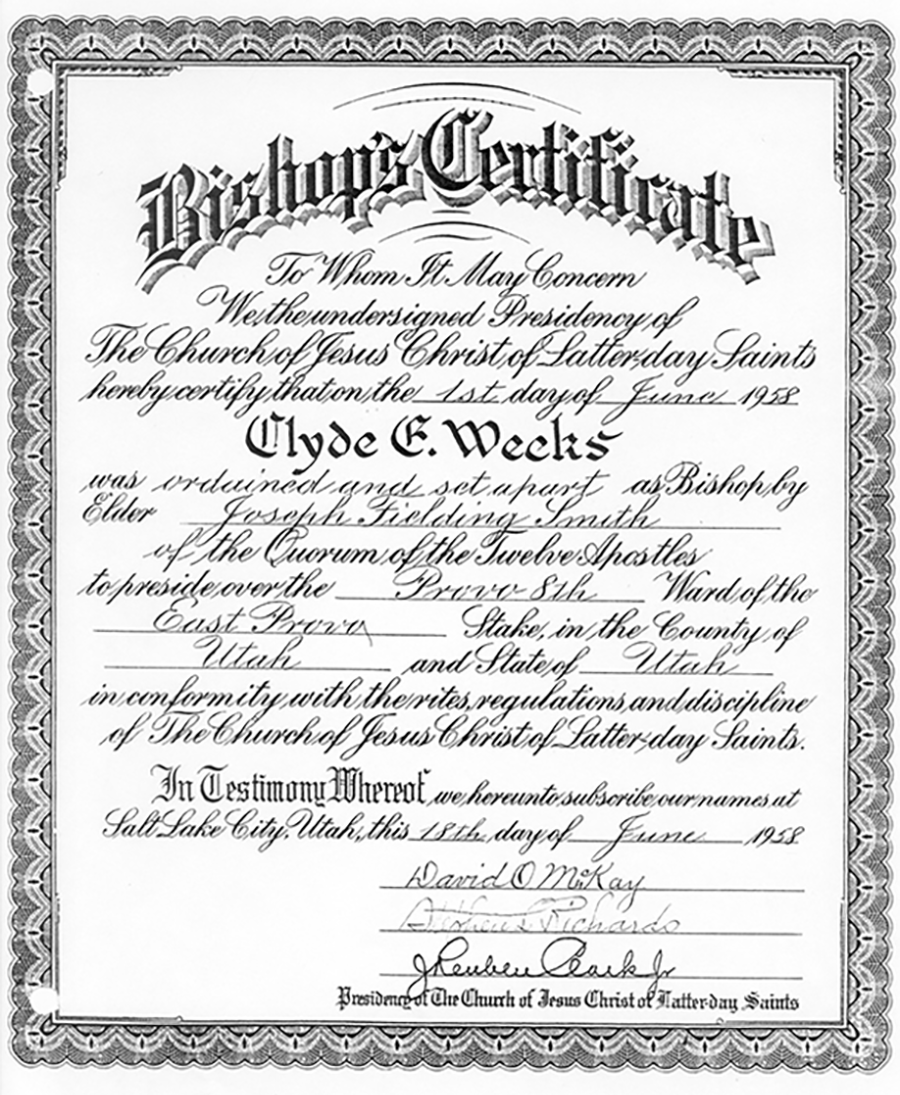 Bishop's Certificate
To Whom It May Concern
We, the undersigned Presidency of
The Church of Jesus Christ of Latter-day Saints
hereby certify that on the 1st day of June 1958
Clyde E. Weeks
was ordained and set apart as Bishop by
Elder Joseph Fielding Smith
of the Quorum of the Twelve Apostles
to preside over the Provo 8th Ward of the
East Provo Stake, in the County of
Utah and State of Utah
in conformity with the rites, regulations and discipline
of The Church of Jesus Christ of Latter-day Saints.
In Testimony Whereof, we hereunto subscribe our names at
Salt Lake City, Utah, this 18th day of June 1958
David O McKay
Stephen L Richards
J Reuben Clark Jr
Presidency of The Church of Jesus Christ of Latter-day Saints